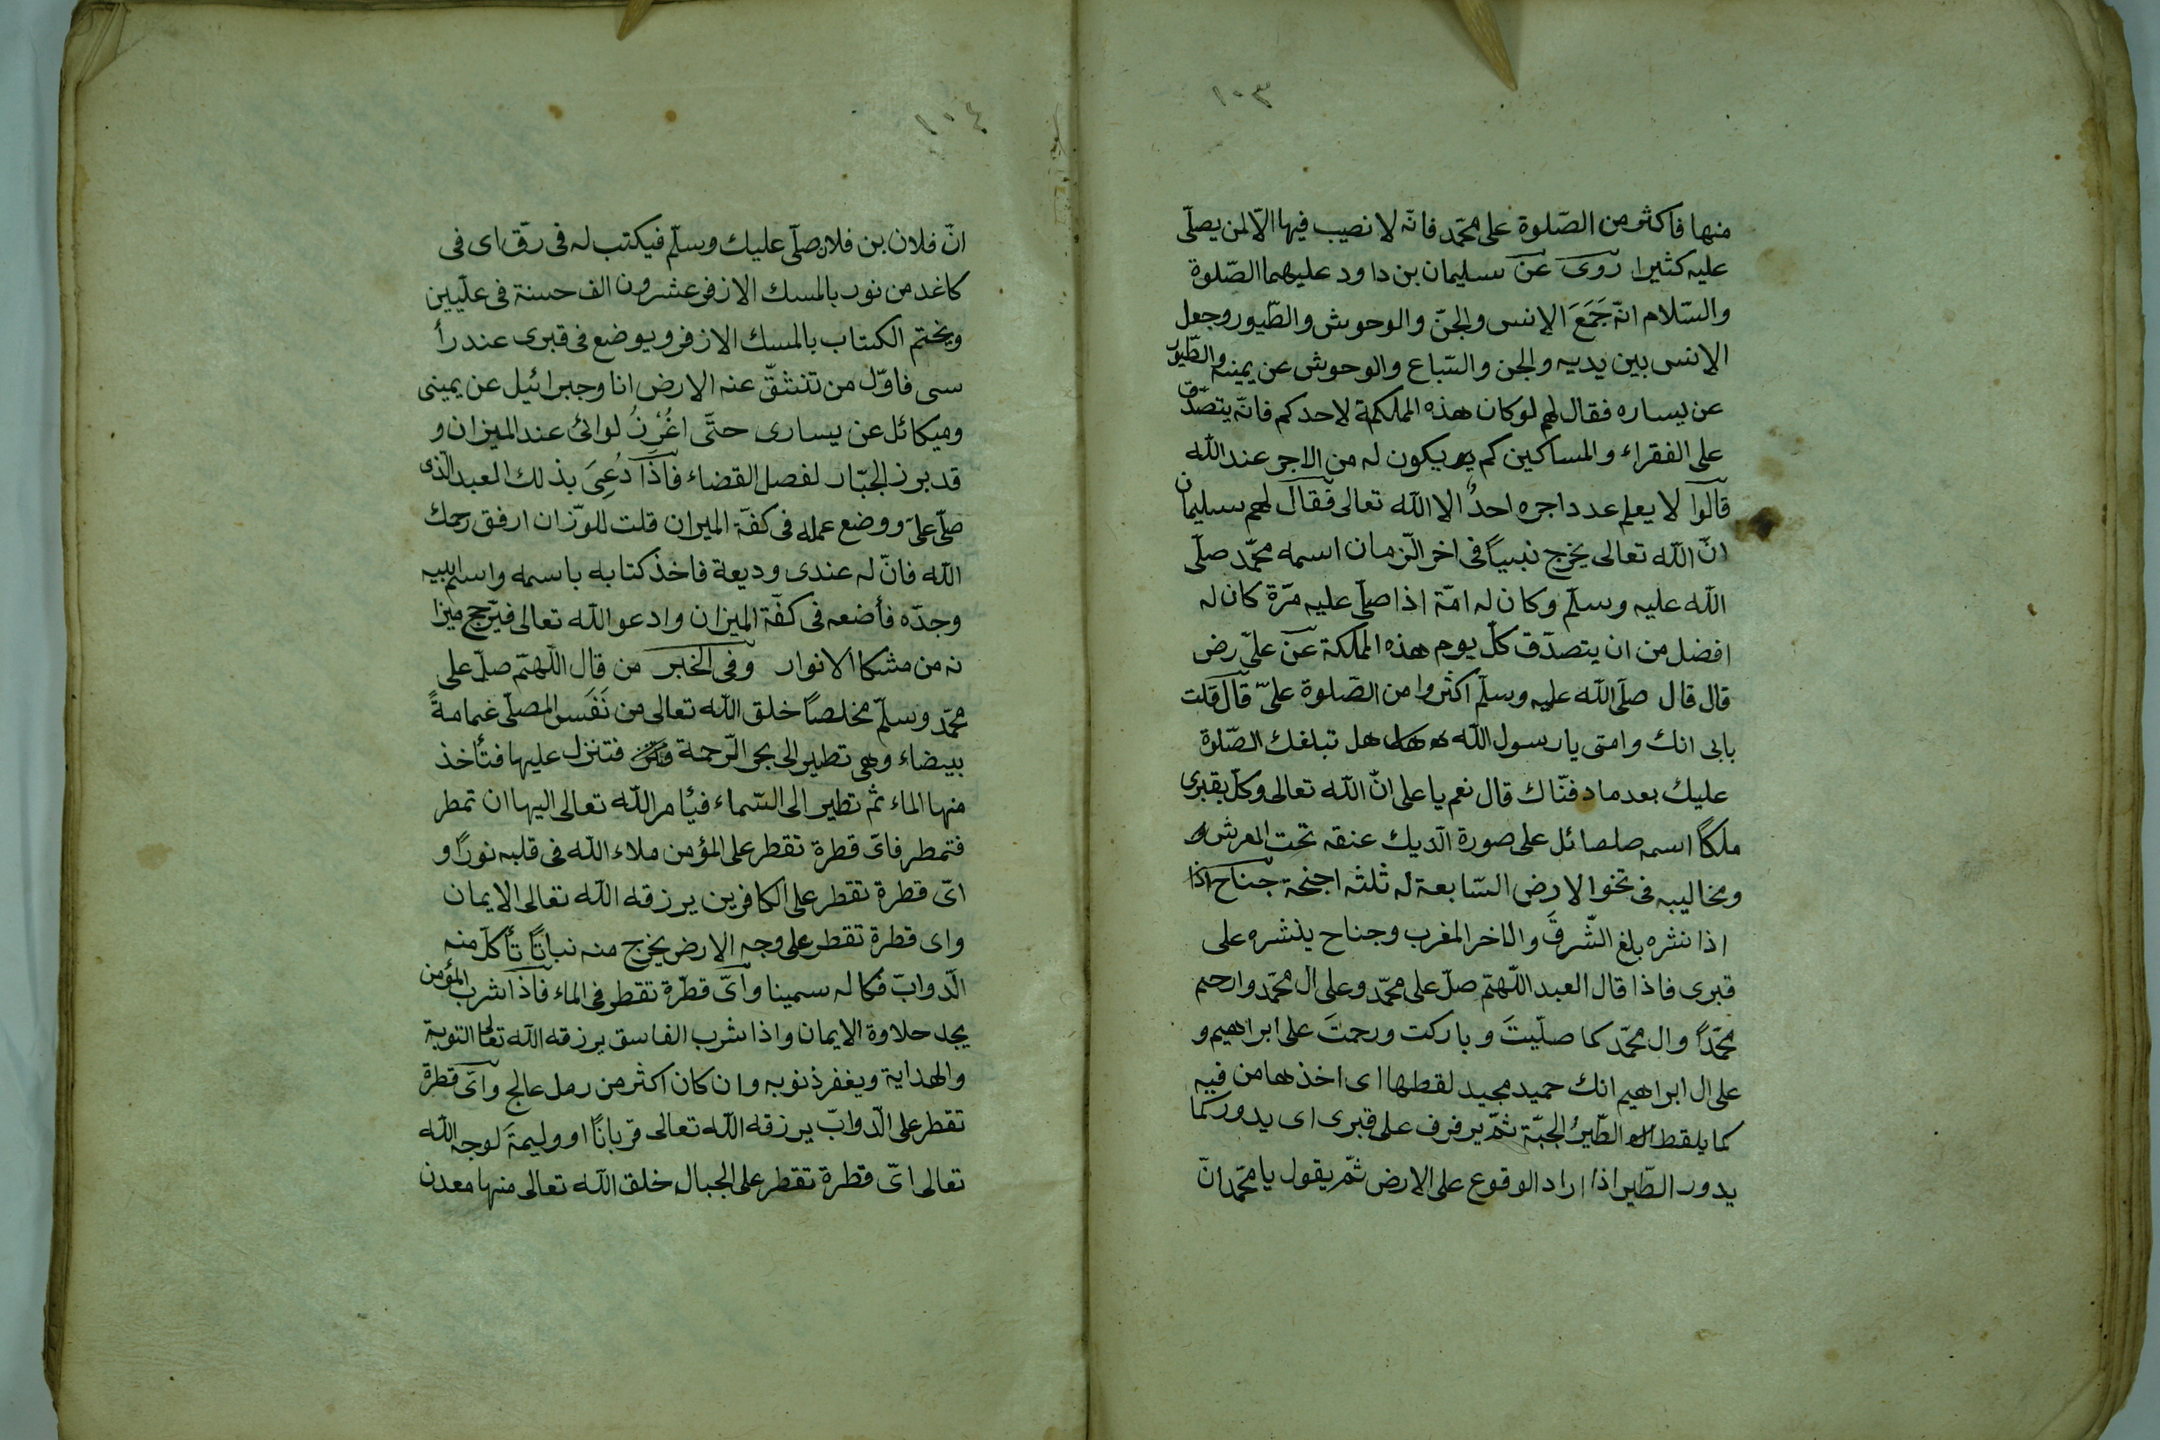 ١٠٣
منها فاكثر من الصّلوة على محمّد فانّه لا نصيب فيها الّا لمن يصلّى
عليه كثيرا روى عن سليمان بن داود عليهما الصّلوة
والسّلام انّه جَمَعَ الإنس والجنّ والوحوش والطّيور وجعل
الإنس بين يديه والجن والسّباع والوحوش عن يمينه والطّيور
عن يساره فقال لهم لو كان هذه المملكة لاحدكم فانّه يتصدّق
على الفقراء والمساكين كم يكون له من الاجر عند الله
قالوا لا يعلم عدد اجره احدٌ الا الله تعالى فقال لهم سليمان
انّ الله تعالى يخرج نبيّاً فى اخر الزّمان اسمه محمّد صلّى
الله عليه وسلّم وكان له امّة اذا صلّى عليه مرّة كان له
افضل من ان يتصدّق كلّ يوم هذه المملكة عن علىّ رض
قال قال صلّى الله عليه وسلّم اكثروا من الصّلوة علىّ قال قلت
بابى انك وامتى يا رسول الله هل تبلغك الصّلوة
عليك بعد ما دفنّاك قال نعم يا على انّ الله تعالى وكلّ بقبرى
ملكاً اسمه صلصائل على صورة الدّيك عنقه تحت العرش و
ومخاليبه فى تخوا الارض السّابعة له ثلثه اجنحة جناح اذا
اذا نشره بلغ الشّرقَ والاخر المغرب وجناح ينشره على
قبرى فاذا قال العبد اللّهمّ صلّ على محمّد وعلى ال محمّد وارحم
محمّداً وال محمّد كما صلّيتَ وباركت ورحمتَ على ابراهيم و
على ال ابراهيم انك حميد مجيد لقطها اى اخذها من فيه
كما يلقط الطّيرُ الحبّة ثمّ يرفرف على قبرى اى يدور كما
يدور الطّير اذا اراد الوقوع على الارض ثمّ يقول يا محمّد انّ
١٠٤
انّ فلان بن فلان صلّى عليك وسلّم فيكتب له فى رقّ اى فى
كاغد من نور بالمسك الازفر عشرون الف حسنة فى علّيين
ويختم الكتاب بالمسك الازفر ويوضع فى قبرى عند رأ
سى فاوّل من تنشقّ عنه الارض انا وجبرائيل عن يمينى
وميكائل عن يسارى حتّى اغْرِنُ لوائى عند الميزان و
قد برز الجبّار لفصل القضاء فاذا دُعِىَ بذلك العبد الّذى
صلّى علىّ ووضع عمله فى كفّة الميزان قلت للوزّان ارفق رحمك
الله فانّ له عندى وديعة فاخذ كتابه باسمه واسم ابيه
وجدّه فأضعه فى كفّة الميزان وادعو الله تعالى فيرّجح ميزا
نه من مشكا الانوار وفى الخبر من قال اللّهمّ صلّ على
محمّد وسلّم مخلصاً خلق الله تعالى من نَفَس المصلّى غمامةً
بيضاء وهى تطير الى بحر الرّحمة فتنزل عليها فتأخذ
منها الماء ثمّ تطير الى السّماء فيأمر الله تعالى اليها ان تمطر
فتمطر فاىّ قطرة تقطر على المؤمن ملاء الله فى قلبه نوراً و
اىّ قطرة تقطر على الكافرين يرزقه الله تعالى الايمان
واى قطرة تقطر على وجه الارض يخرج منه نباتاً تأكل منه
الدّوابّ فكا له سمينا واىّ قطرة تقطر فى الماء فاذا شرب المؤمن
يجد حلاوة الايمان واذا شرب الفاسق يرزقه الله تعالى التوبة
والهداية ويغفر ذنوبه وان كان اكثر من رمل عالج واىّ قطرة
تقطر على الدّوابّ يرزقه الله تعالى قرباناً او وليمةَ لوجه الله
تعالى اىّ قطرة تقطر على الجبال خلق الله تعالى منها معدن